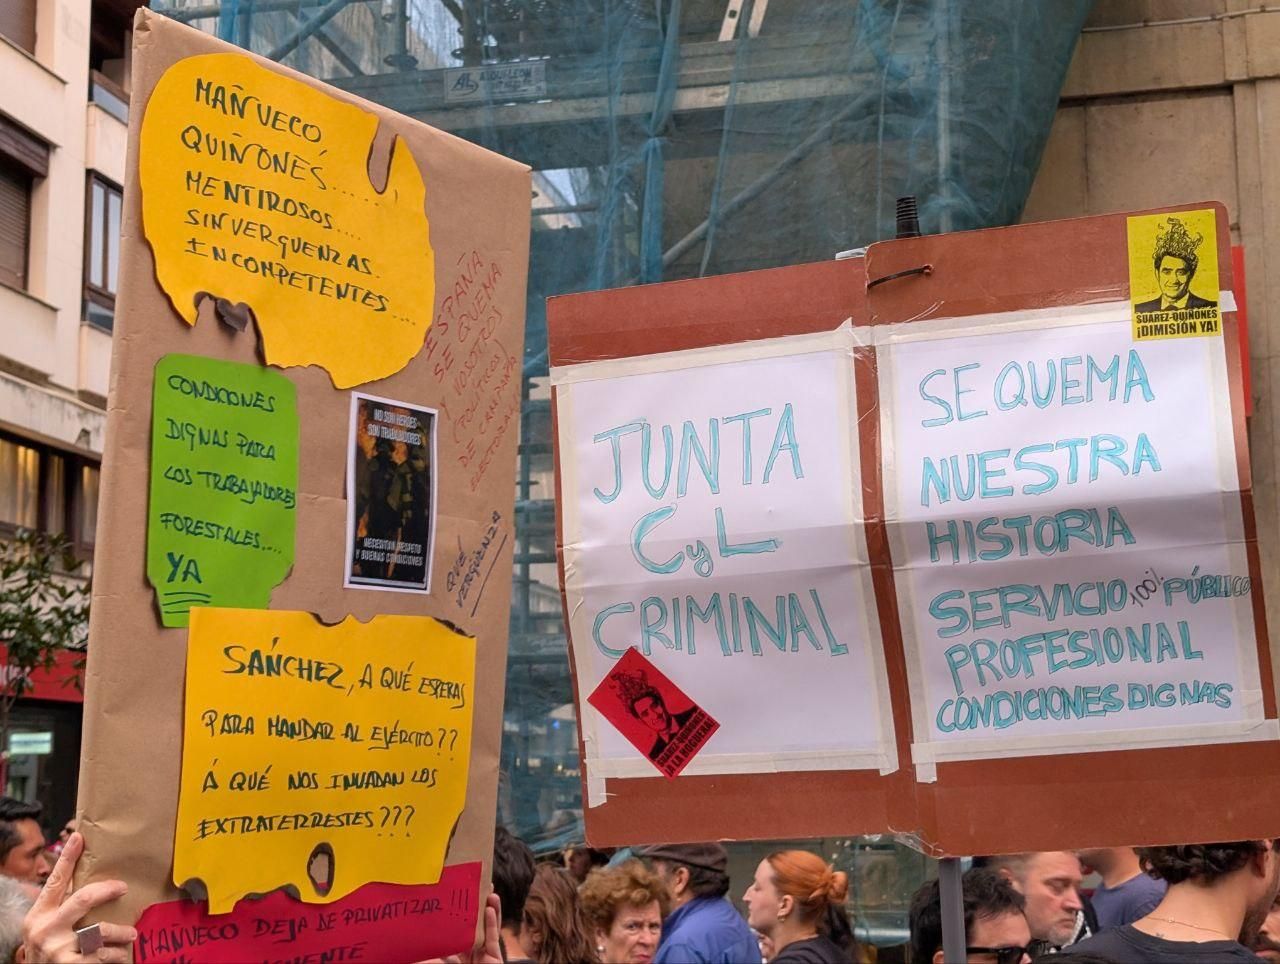 MAÑUECO,
QUIÑONES.....,
MENTIROSOS....
SINVERGUENZAS.
INCOMPETENTES....
ESPAÑA
SE QUEMA
Y VOSOTROS
(POLÍTICOS)
DE CAMPAÑA
ELECTORAL
CONDICIONES
DIGNAS PARA
LOS TRABAJADORES
FORESTALES....
YA
NO SON HÉROES
SON TRABAJADORES
NECESITAN RESPETO
Y BUENAS CONDICIONES
QUÉ
VERGÜENZA
SÁNCHEZ, A QUÉ ESPERAS
PARA MANDAR AL EJÉRCITO??
Á QUÉ NOS INVADAN LOS
EXTRATERRESTES???
MAÑUECO DEJA DE PRIVATIZAR!!!
AL
JUNTA
CyL
CRIMINAL
SUAREZ-QUIÑONES
¡A LA HOGUERA!
SUAREZ-QUIÑONES
¡DIMISIÓN YA!
SE QUEMA
NUESTRA
HISTORIA
SERVICIO 100% PÚBLICO
PROFESIONAL
CONDICIONES DIGNAS